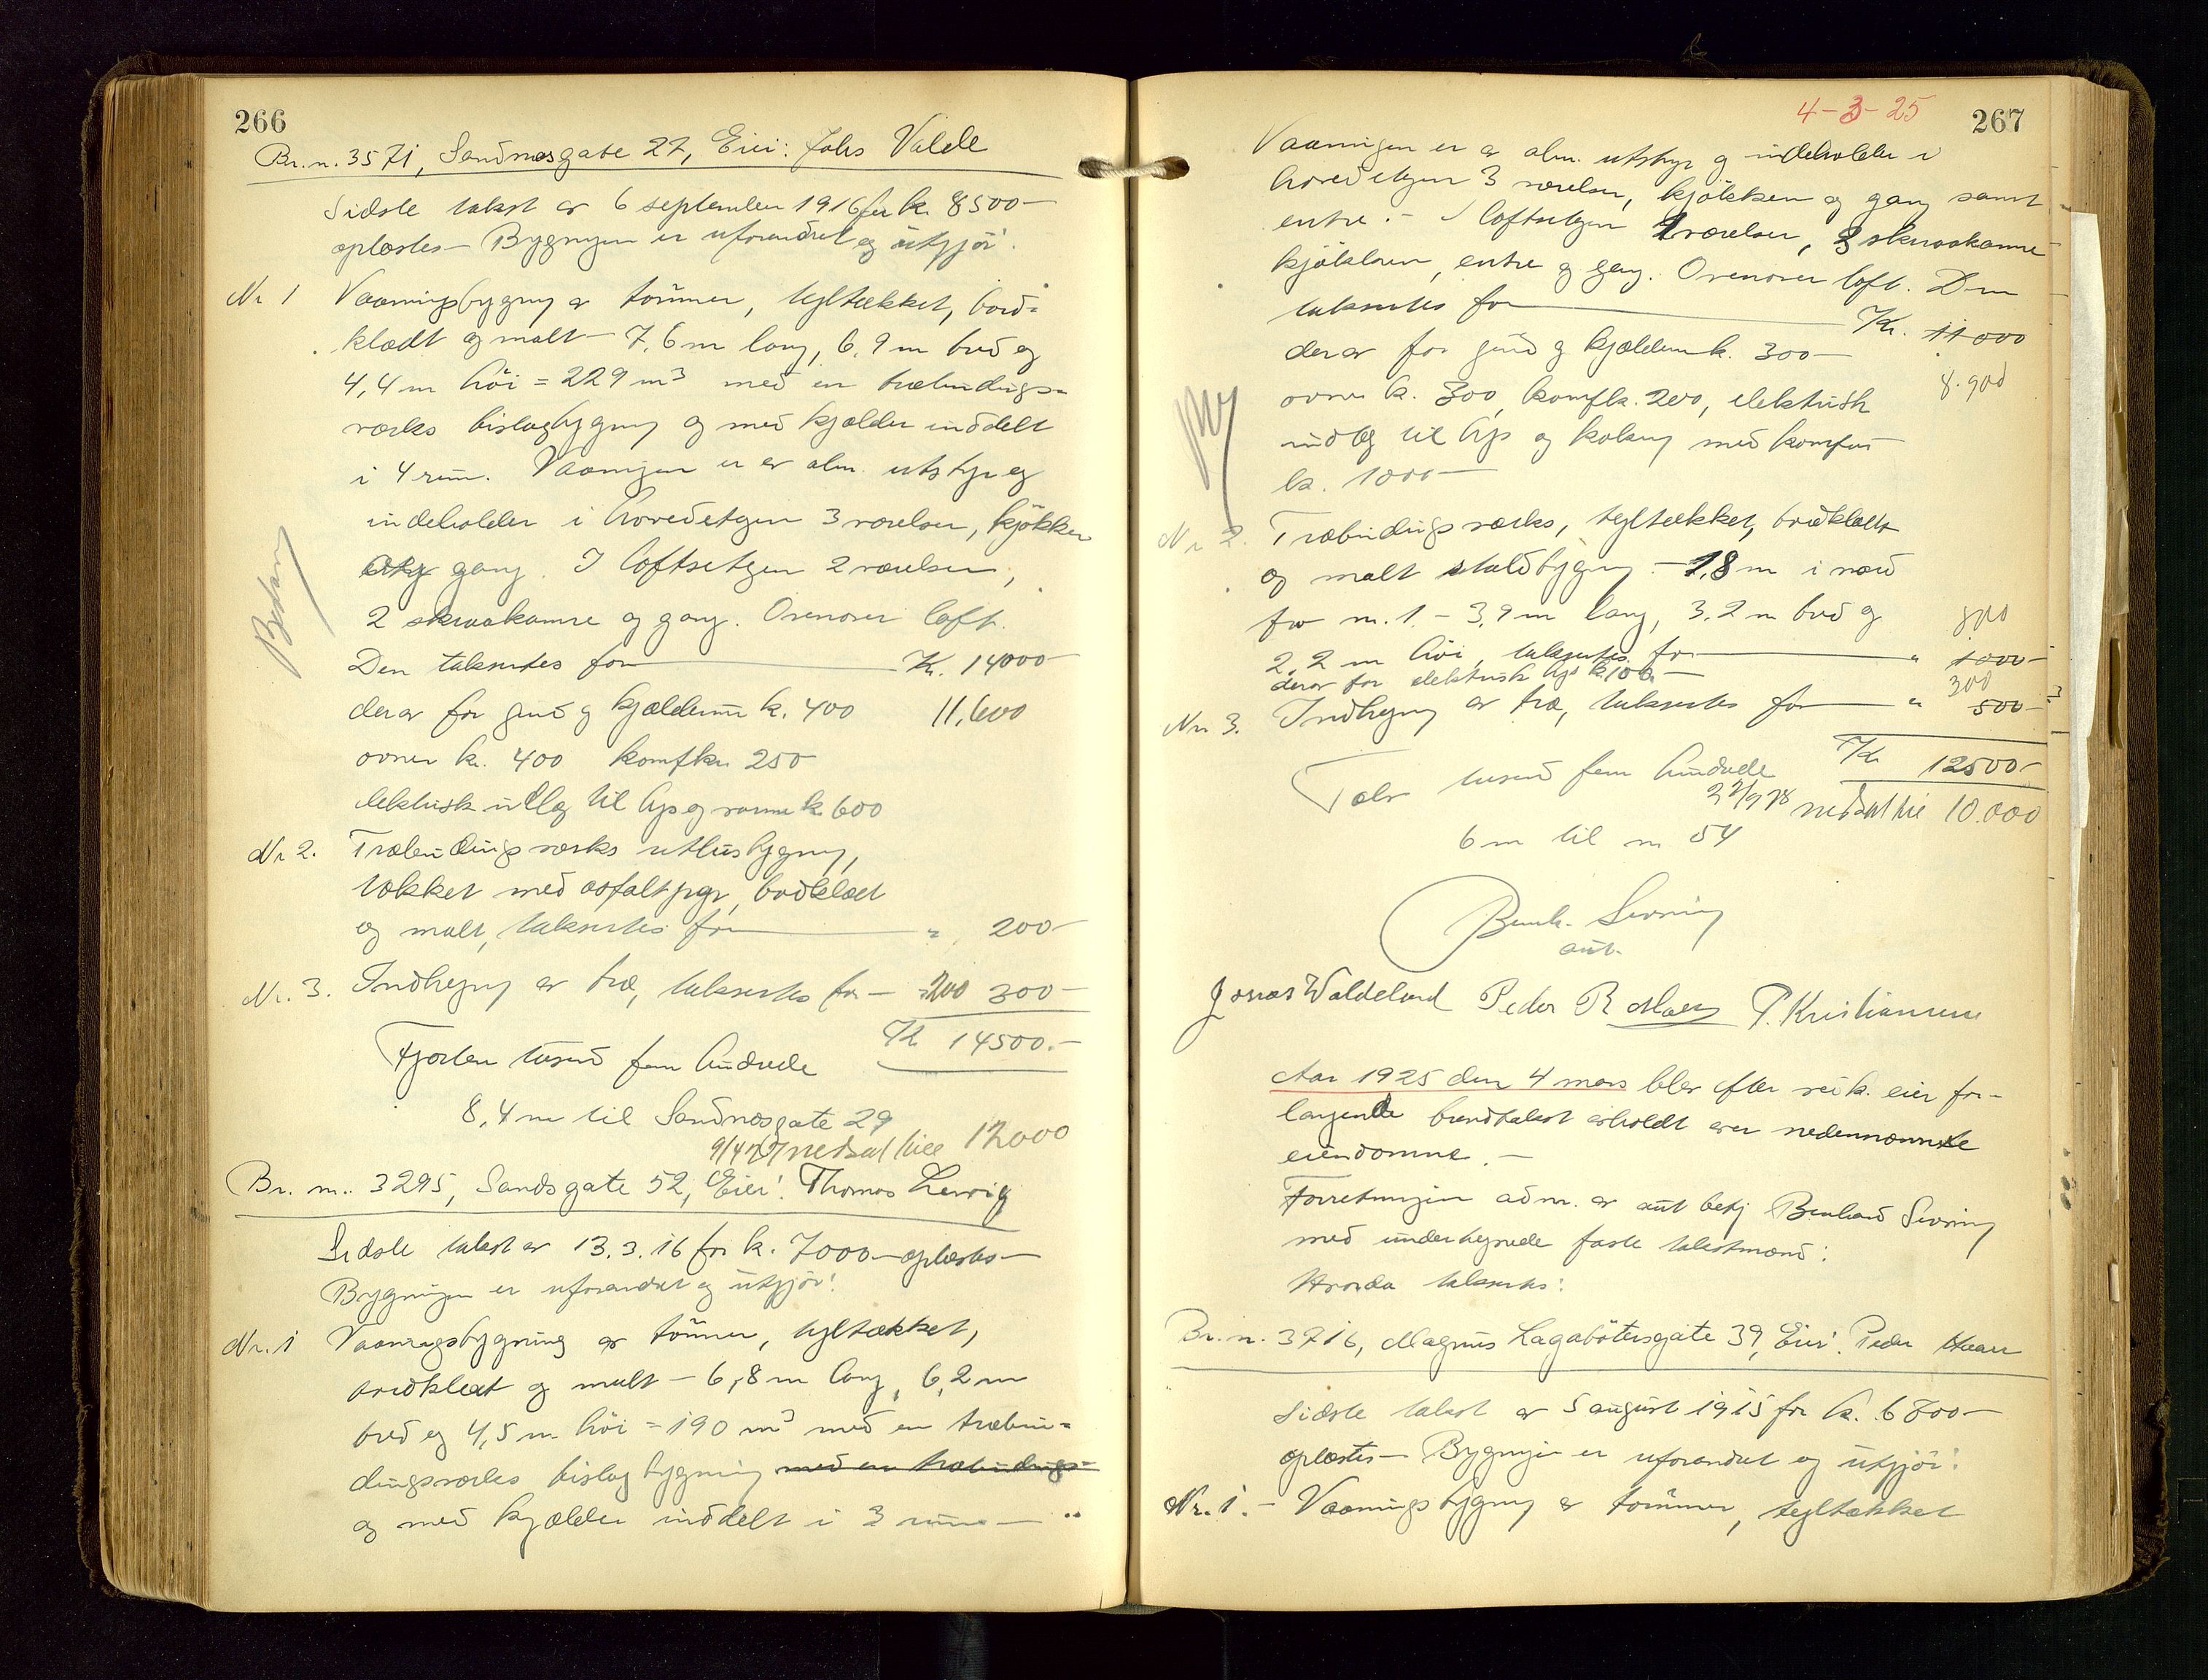 266
Br. n. 3571, Sandnæsgate 27, Eier: Johs Valde
Sidste takst av 6 september 1916 for kr. 8500-
oplæstes - Bygningen er uforandret og utgjør:
Nr 1 Vaaningsbygning av tømmer, tegltækket, bord-
klædt og malt - 7,6 m lang, 6,9 m bred og
4,4 m høi = 229 m³ med en træbindings-
verks bislagbygning og med kjælder inddelt
i 4 rum. Vaaningen er av alm. utstyr og
indeholder i hovedetagen 3 værelser, kjøkken
og gang. I loftsetagen 2 værelser,
2 skraakamre og gang. Ovenover loft.
Den takseres for Kr. 14000-
derav for grund og kjældermur k. 400 11,600
ovner kr. 400 komfkr. 250
elektrisk indlæg til lys og varme k. 600
Nr 2. Træbindingsverks uthusbygning,
tækket med asfaltpap, bordklædt
og malt, takseres for " 200-
Nr. 3. Indhegning av træ, takseres for - 200 300-
Kr 14500.-
Fjorten tusend fem hundrede
8,4 m til Sandnæsgate 29
9/4 27 nedsat til 12000
Bedam
Br. nr. 3295, Sandsgate 52, Eier: Thomas Lervig
Sidste takst av 13.3.16 for k. 7000- oplæstes-
Bygningen er uforandret og utgjør:
Nr. 1 Vaaningsbygning av tømmer, tegltækket,
bordklædt og malt - 6,8 m lang, 6,2 m
bred og 4,5 m høi = 190 m³ med en træbin-
dingsverks bislagbygning med en træbindings-
og med kjælder inddelt i 3 rum -
4-3-25 267
Vaaningen er av alm. utstyr og indeholder i
hovedetagen 3 værelser, kjøkken og gang samt
entre. - I loftsetagen 2 værelser, 3 skraakamre
kjøkken, entre og gang. Ovenover loft. Den
takseres for Kr. 11000
derav for grund og kjældermur k. 300-
8.900
ovner k. 300, komfkr. 200, elektrisk
indlæg til lys og kokning med komfur
kr. 1000-
Nr 2. Træbindingsverks, tegltækket, bordklædt
og malt staldbygning - 1,8 m i nord
for nr. 1 - 3,9 m lang, 3,2 m bred og
800
2,2 m høi, takseres for " 1000-
derav for elektrisk lys kr. 100.-
300
Nr. 3. Indhegning av træ, takseres for " 500-
Kr 12500-
Tolv tusend fem hundrede
22/9 28 nedsat til 10.000
6 m til nr 54
Bernh. Sivring
aut.
Jonas Waldeland Peder R Maas P. Kristiansen
Aar 1925 den 4 mars blev efter rekv. eier for-
langende brandtakst avholdt over nedennævnte
eiendomme. -
Forretningen adm. av aut befg Bernhard Sivring
med undertegnede faste takstmænd:
Hvorda takseres:
Br. n. 3716, Magnus Lagabøtersgate 39, Eier: Peder Haar
Sidste takst av 5 august 1915 for kr. 6800-
oplæstes - Bygningen er uforandret og utgjør:
Nr. 1. - Vaaningsbygning av tømmer, tegltækket